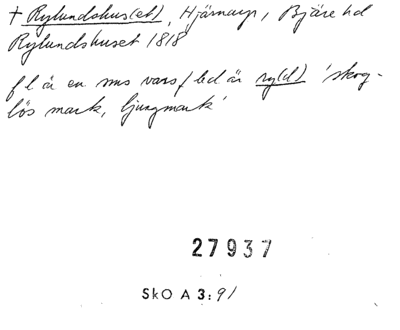 † Rylundshus(et), Hjärnarp, Bjäre hd
Rylundshuset 1818
fl är en sms vars f led är ry(d) 'skog-
lös mark, ljungmark'
27937
SkO A 3:91